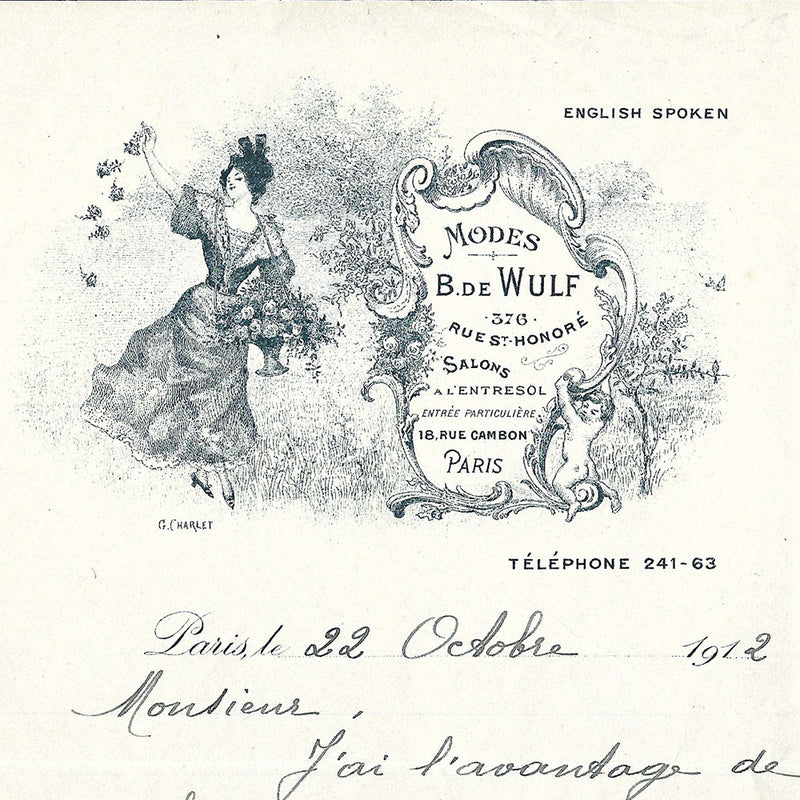 ENGLISH SPOKEN
MODES
B. DE WULF
·376·
RUE ST-HONORÉ
SALONS
A L'ENTRESOL
ENTRÉE PARTICULIÈRE
18, RUE CAMBON
PARIS
G. CHARLET
TÉLÉPHONE 241-63
Paris, le 22 Octobre 1912
Monsieur,
J'ai l'avantage de